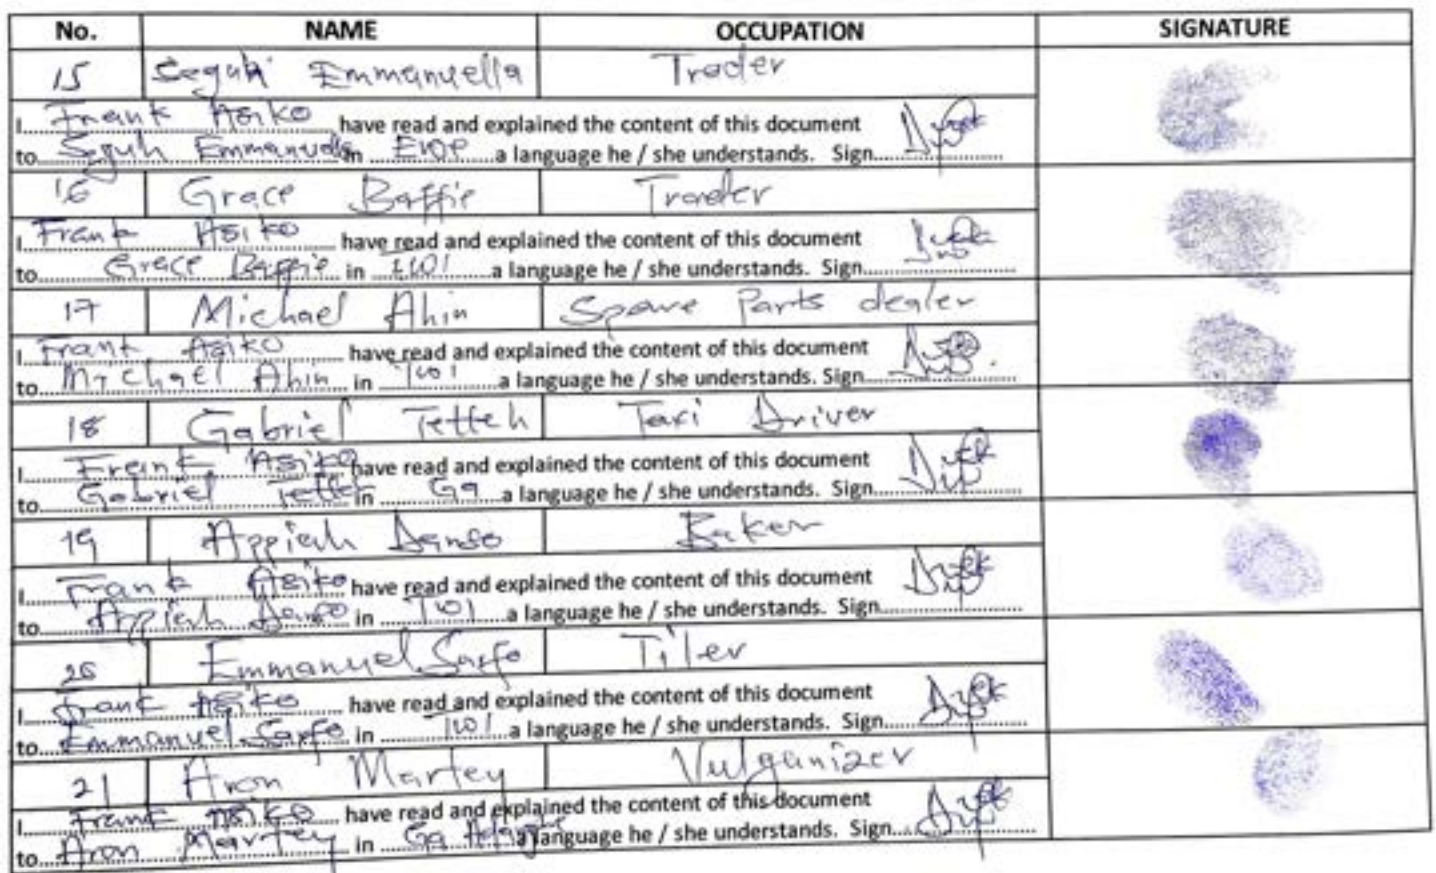 No. NAME OCCUPATION SIGNATURE
15 Seguh Emmanuella Trader
I Frank Asiko have read and explained the content of this document
to Seguh Emmanuella in Ewe a language he / she understands. Sign
16 Grace Baffie Trader
I Frank Asiko have read and explained the content of this document
to Grace Baffie in Twi a language he / she understands. Sign
17 Michael Ahin Spare Parts dealer
I Frank Asiko have read and explained the content of this document
to Michael Ahin in Twi a language he / she understands. Sign
18 Gabriel Tetteh Taxi Driver
I Frank Asiko have read and explained the content of this document
to Gabriel Tetteh in Ga a language he / she understands. Sign
19 Appiah Danso Baker
I Frank Asiko have read and explained the content of this document
to Appiah Danso in Twi a language he / she understands. Sign
20 Emmanuel Sarfo Tiler
I Frank Asiko have read and explained the content of this document
to Emmanuel Sarfo in Twi a language he / she understands. Sign
21 Aron Martey Vulganizer
I Frank Asiko have read and explained the content of this document
to Aron Martey in Ga Adangbe a language he / she understands. Sign